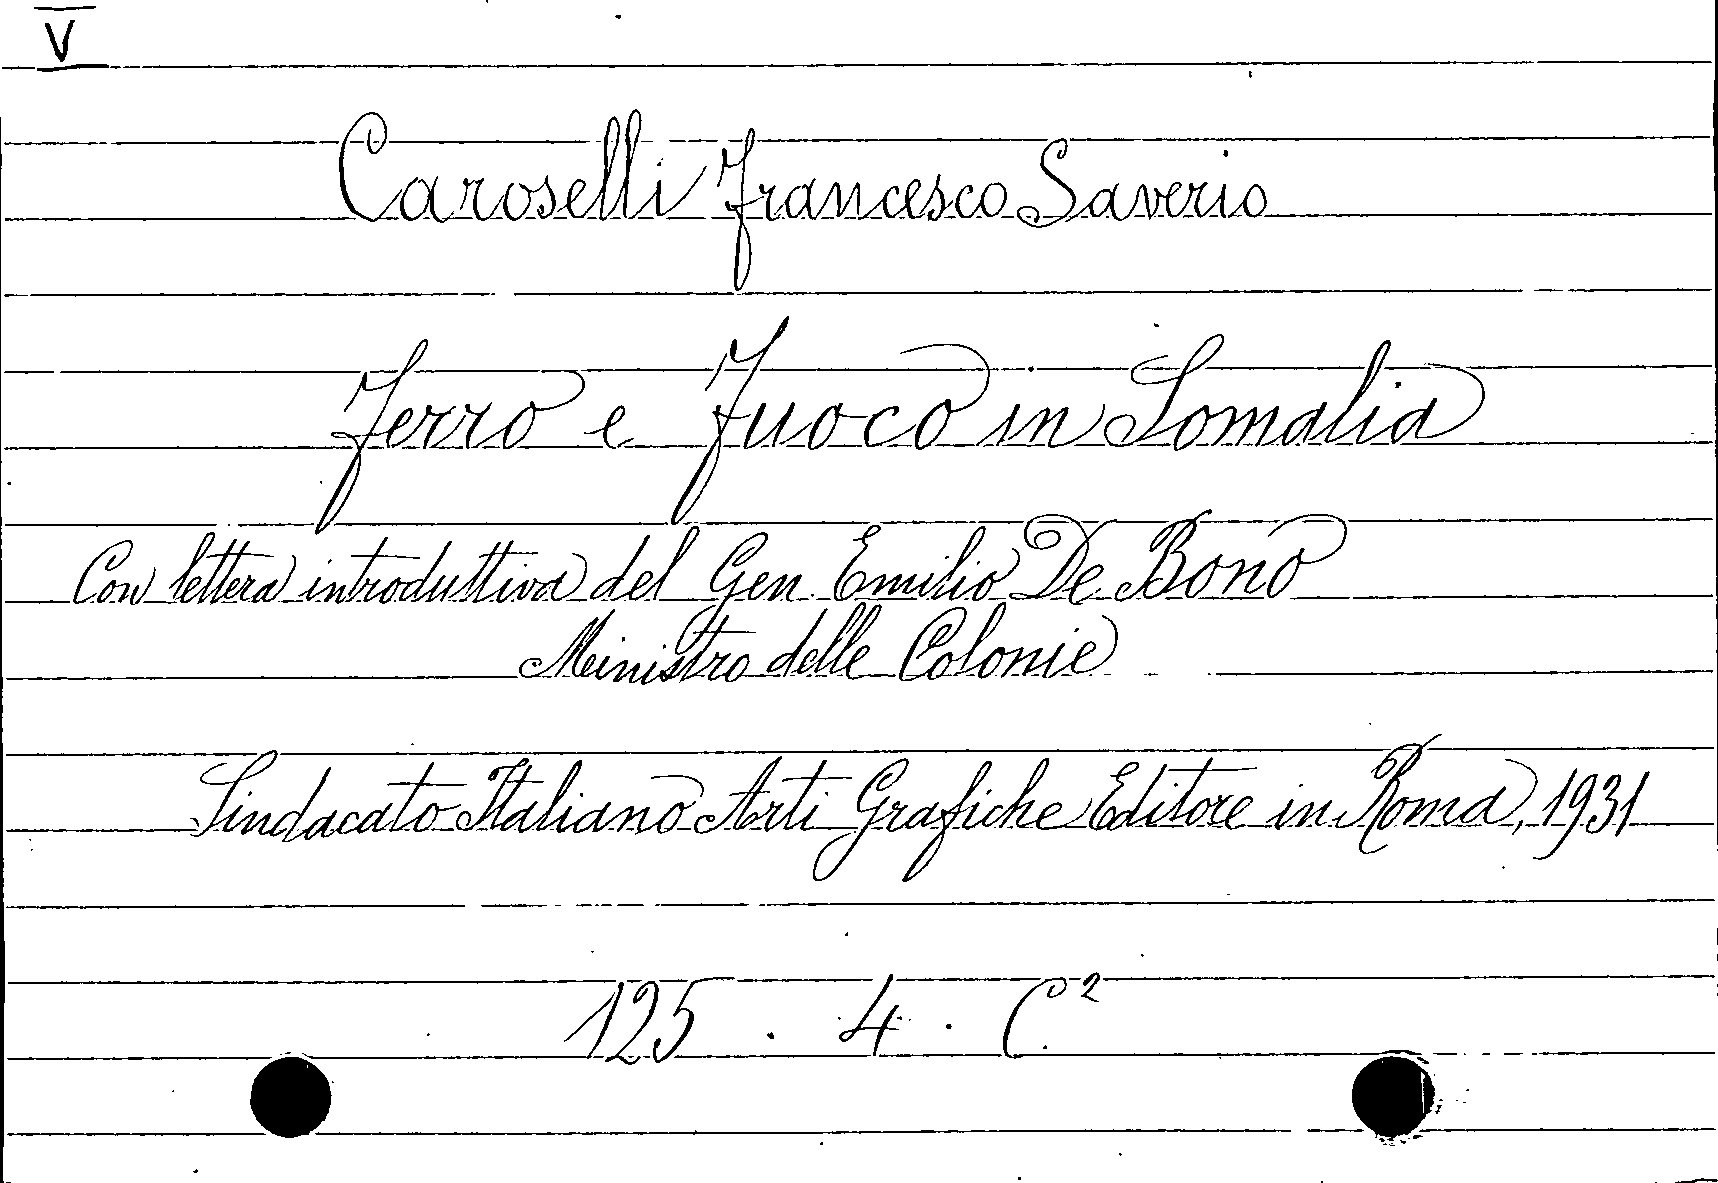 V
Caroselli Francesco Saverio
Ferro e Fuoco in Somalia
Con lettera introduttiva del Gen. Emilio De Bono
Ministro delle Colonie
Sindacato Italiano Arti Grafiche Editore in Roma, 1931
125 . 4 . C²